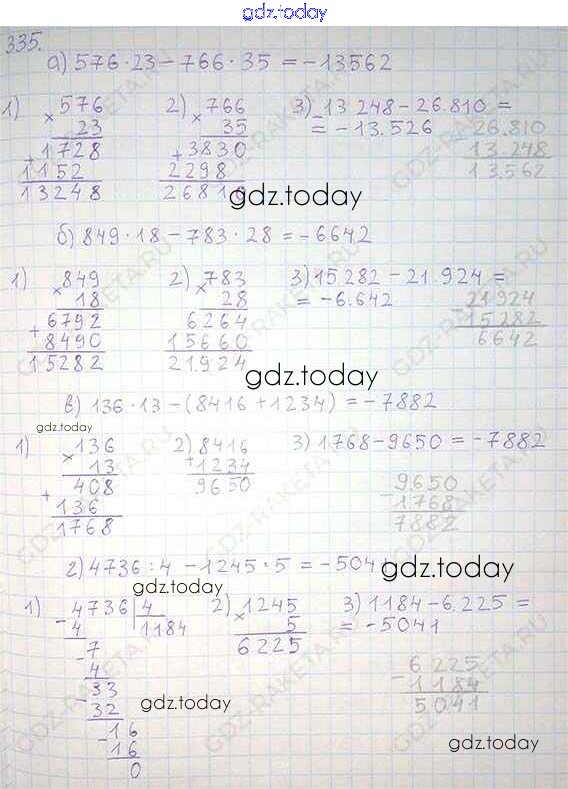 gdz.today
335.
а) 576·23-766·35=-13562
1) 576 2) 766 3) 13 248-26.810=
× 23 × 35 =-13.526 26.810
+1728 +3830 - 13.248
1152 2298 13.562
13248 26810 gdz.today
б) 849·18-783·28=-6642
1) ×849 2) ×783 3) 15 282-21.924=
18 28 =-6.642 21.924
+6792 6264 -15282
8490 15660 6642
15282 21.924
gdz.today
в) 136·13-(8416+1234)=-7882
gdz.today
1) ×136 2) 8416 3) 1768-9650=-7882
13 +1234
408 9650 9650
+136 -1768
1768 7882
г) 4736:4-1245·5=-5041
gdz.today
gdz.today
1) -4736|4 2) ×1245 3) 1184-6.225=
4 1184 5 =-5041
-7 6225
4 6225
-33 -1184
32 5041
-16
16
0
gdz.today
gdz.today
GDZ-RAKETA.RU